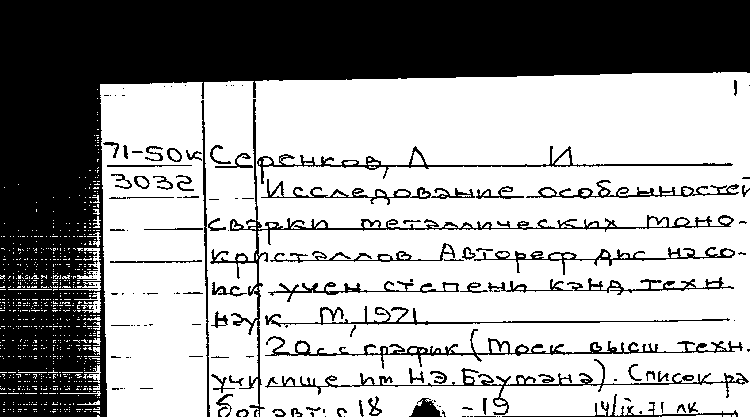 71-50к Серенков, Л И
3032 Исследование особенностей
сварки металлических моно-
кристаллов. Автореф дис на со-
иск. учен. степени канд. техн
наук. М., 1971.
20с с график (Моск высш техн.
училище им Н.Э. Баумана). Список ра
бот авт: с 18 -19 14/IX.71 лк